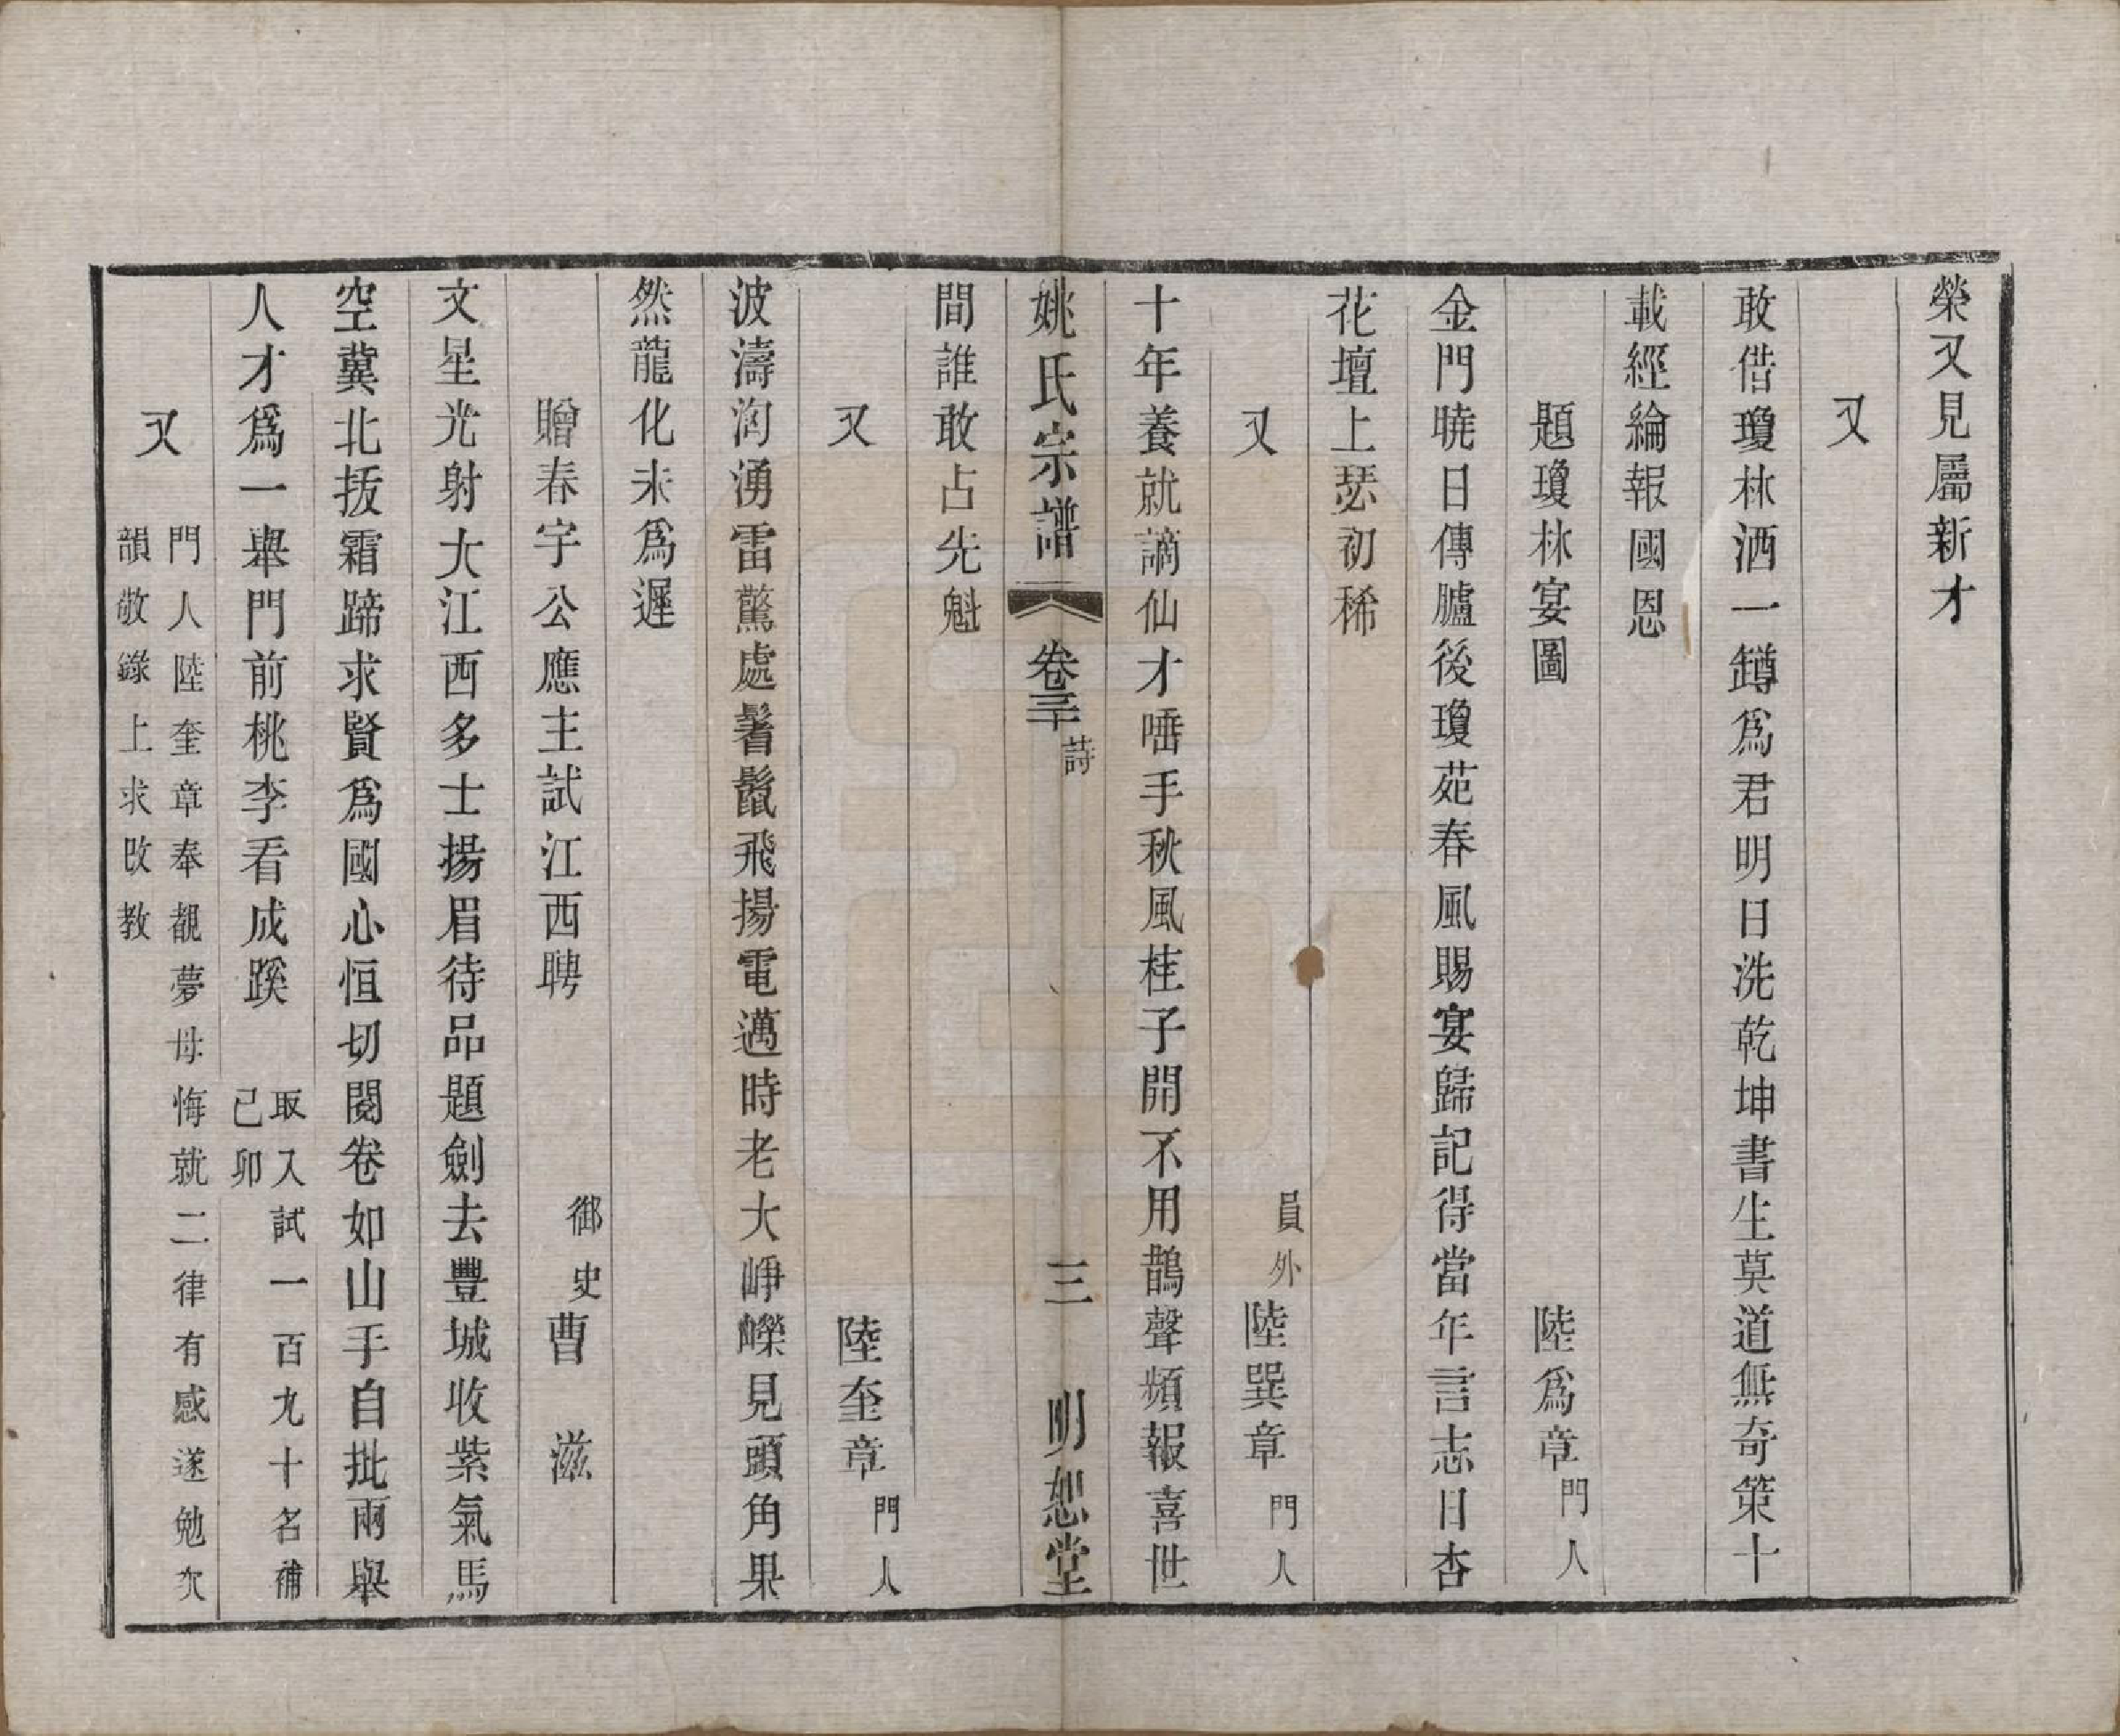 榮又見屬新才
又
敢偕瓊林酒一罇爲君明日洗乾坤書生莫道無奇策十
載經綸報國恩
題瓊林宴圖　陸爲章門人
金門曉日傳臚後瓊苑春風賜宴歸記得當年言志日杏
花壇上瑟初稀
又　員外陸巽章門人
十年養就謫仙才唾手秋風桂子開不用鵲聲頻報喜世
姚氏宗譜　卷三十　詩　三　明恕堂
間誰敢占先魁
又　陸奎章門人
波濤洶湧雷驚處鬐鬣飛揚電邁時老大崢嶸見頭角果
然龍化未爲遲
贈春宇公應主試江西聘　御史曹滋
文星光射大江西多士揚眉待品題劍去豐城收紫氣馬
空冀北拔霜蹄求賢爲國心恒切閱卷如山手自批兩舉
人才爲一舉門前桃李看成蹊　取入試一百九十名補
己卯
又　門人陸奎章奉覩夢母悔就二律有感遂勉次
韻敬錄上求改教